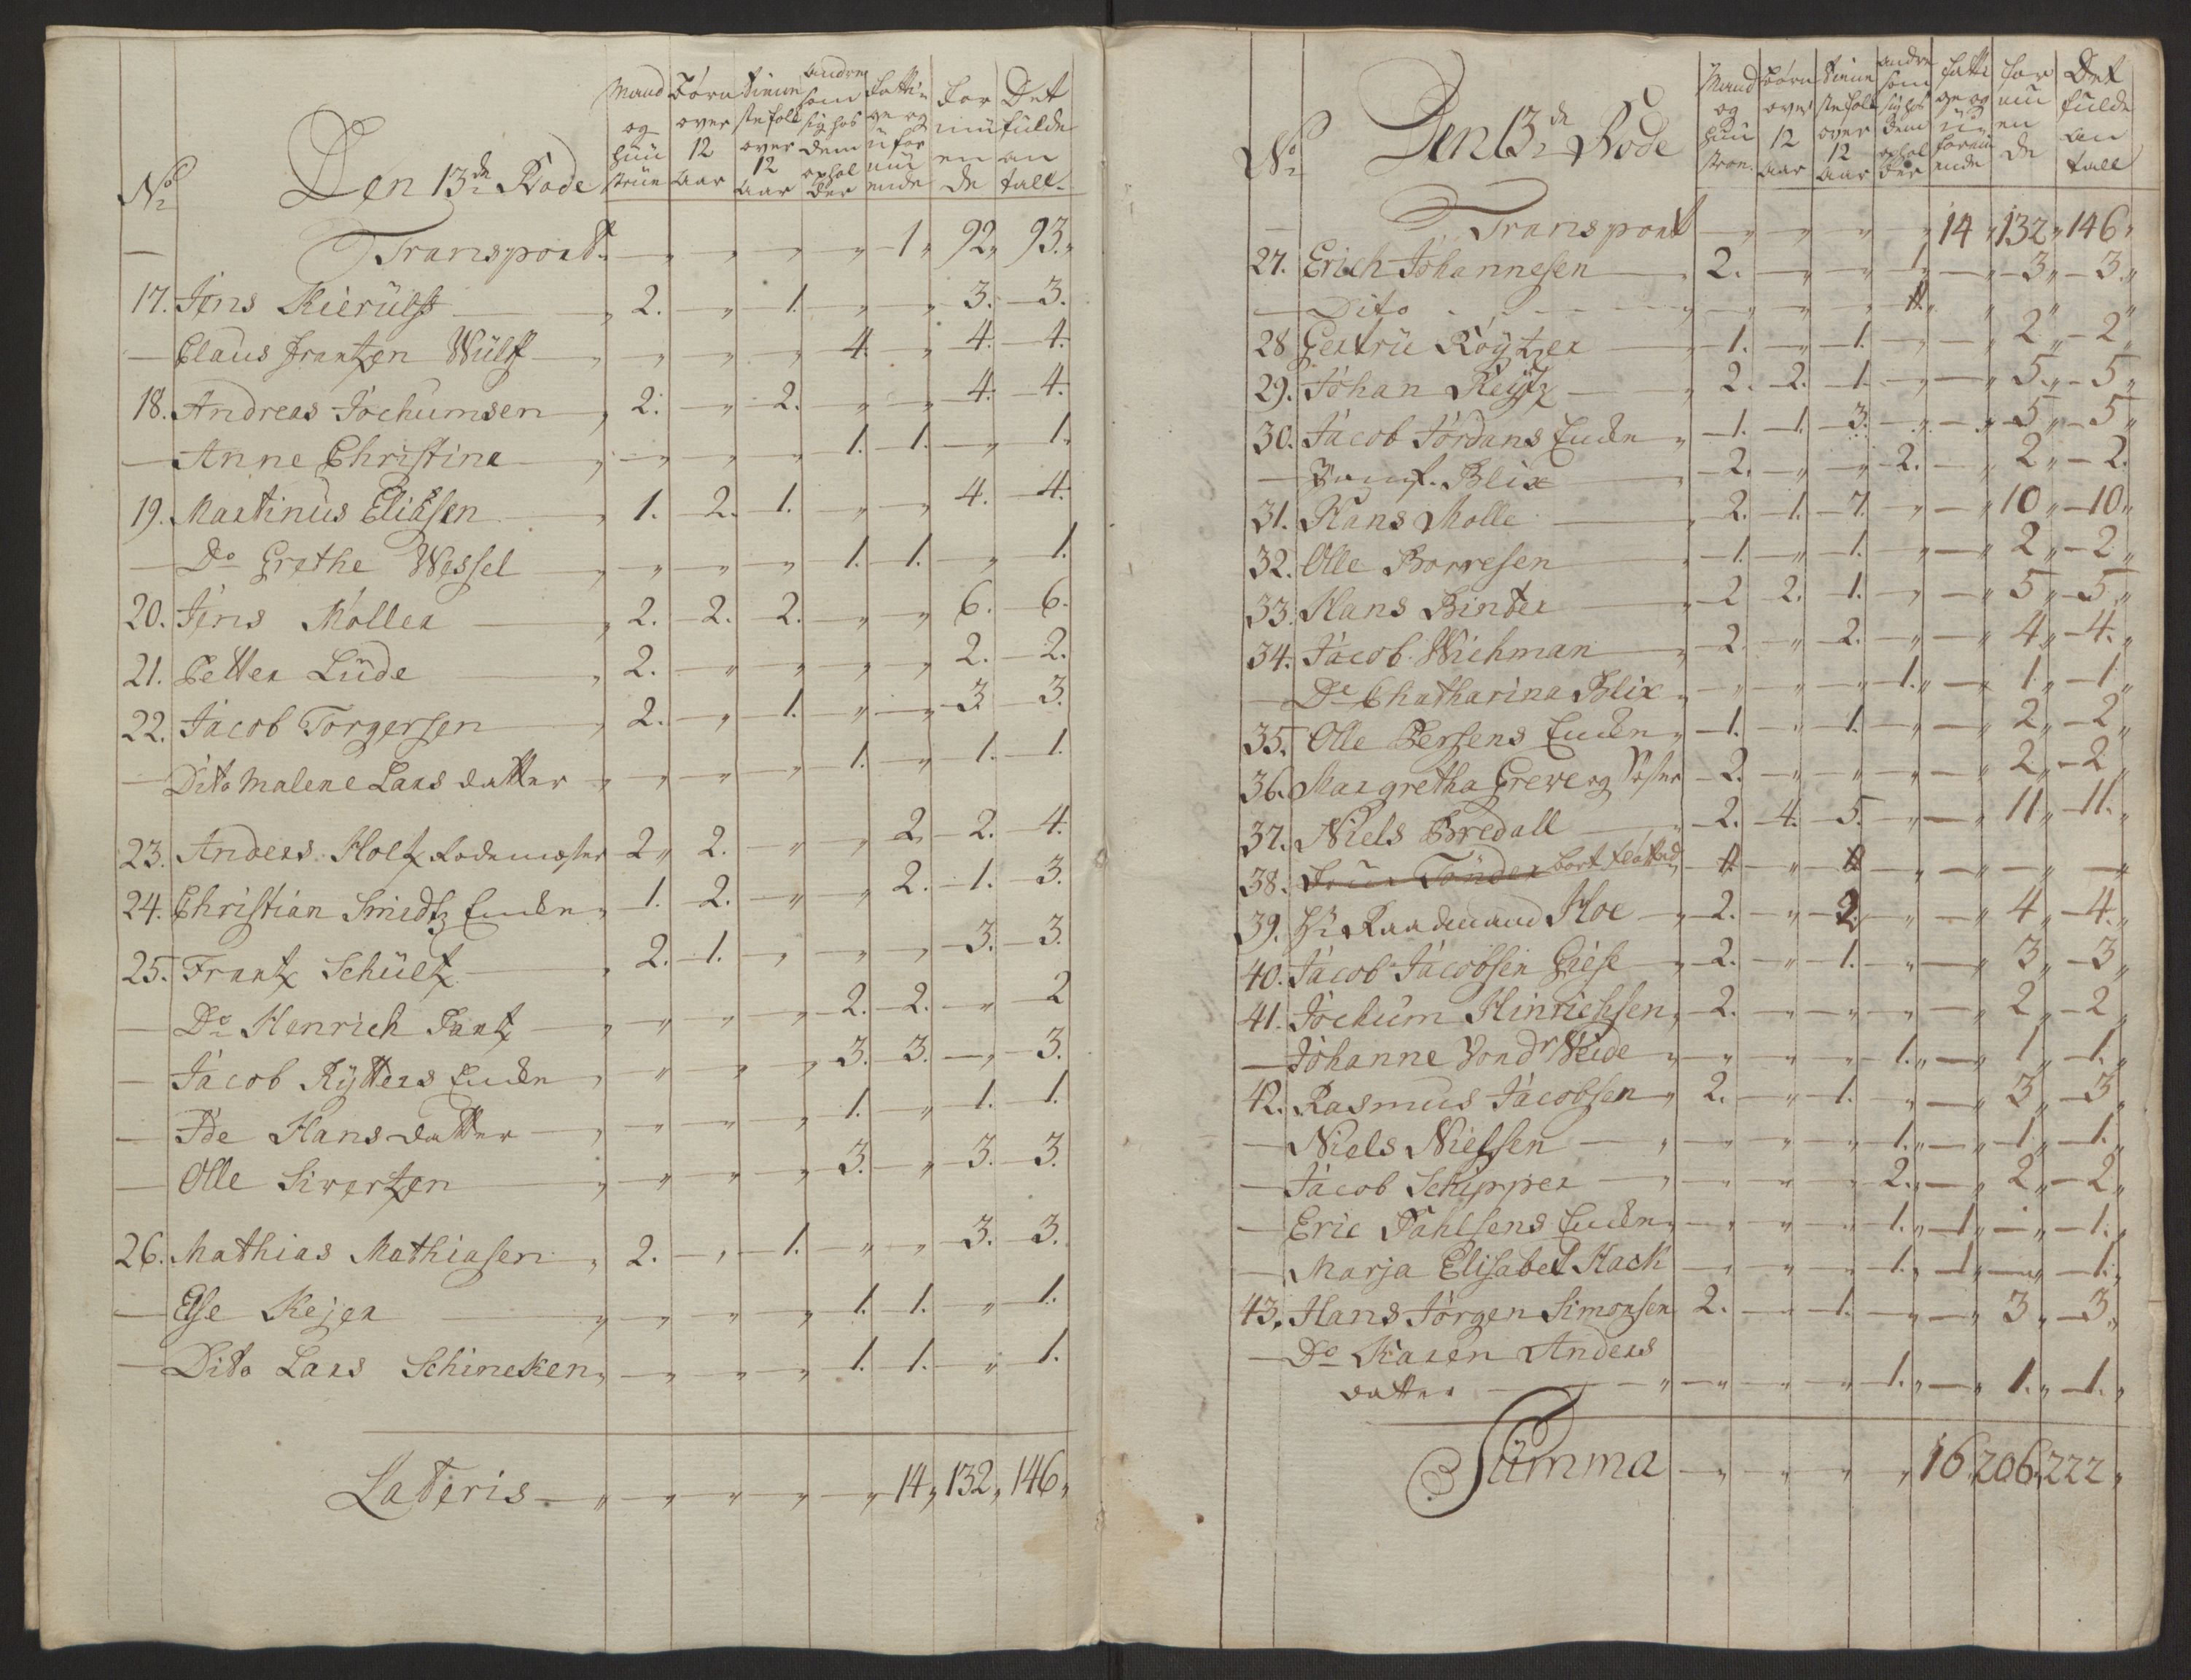 No Den 13de Rode Mand og Hustrue Børn over 12 Aar Tienne stefolk over 12 Aar andre som sig hos dem ophol der Fatti ge og u for mu ende For mu en de Det fulde an tall
— Transport — „ „ „ „ 1„ 92„ 93„
17. Jens Kierülf — „ 2. „ 1. „ „ 3. 3.
— Claus Frantzen Wülff „ „ „ „ 4. „ 4. 4.
18. Andreas Jochumsen „ 2. „ 2. „ „ 4. 4.
— Anne Christina „ „ „ „ 1. 1. „ 1.
19. Martinus Eliasen „ 1. 2. 1. „ „ 4. 4.
— Do Grethe Wessel „ „ „ „ 1. 1. „ 1.
20. Jens Möller „ 2. 2. 2. „ „ 6. 6.
21. Petter Lüde „ 2. „ „ „ „ 2. 2.
22. Jacob Torgersen „ 2. „ 1. „ „ 3 3.
— Dito Malene Lars datter „ „ „ „ 1. „ 1. 1.
23. Anders Holtz Rodemester 2„ 2. „ „ 2 2. 4.
24. Christian Smidtz Encke „ 1. 2. „ „ 2. 1. 3.
25. Frantz Schültz „ 2. 1. „ „ „ 3. 3.
— Do Henrich Pantz „ „ „ „ 2. 2. „ 2
— Jacob Rytters Encke „ „ „ „ 3. 3. „ 3.
— Ide Hans datter „ „ „ „ 1. „ 1. 1.
— Olle Sivertzen „ „ „ „ 3. „ 3. 3.
26. Mathias Mathiasen „ 2. „ 1. „ „ 3. 3.
— Else Rejer „ „ „ „ 1. 1. „ 1.
— Dito Lars Schineken „ „ „ „ 1. 1. „ 1.
Lateris „ „ „ „ „ 14„ 132„ 146„
No Den 13de Rode Mand og Huustroe Børn over 12 Aar Tienne stefolk over 12 Aar andre som sig hos dem ophol der fatti ge og u formu ende for mu en de Det fulde an tall
— Transport „ „ „ „ 14 „ 132„ 146„
27. Erich Johannesen „ 2. „ „ „ „ 3„ 3„
— Dito „ „ „ „ „ „ „
28 Gertrü Röytzer 1. „ 1. „ „ 2„ 2„
29. Johan Reytz „ 2. 2. 1. „ „ 5„ 5„
30. Jacob Jórdans Encke „ 1. 1. 3. „ „ 5„ 5„
— Blix 2. „ „ 2. „ 2„ 2.
31. Hans Molle „ 2. 1. 7. „ „ 10„ 10„
32. Olle Borresen „ 1. „ 1. „ „ 2„ 2„
33. Hans Binter „ 2 2. 1. „ „ 5„ 5„
34. Jacob Wichman „ 2. „ 2. „ „ 4„ 4.„
— Do Chatharina Blix „ „ „ „ 1. „ 1„ 1„
35. Olle Persens Encke „ 1. „ 1. „ „ 2„ 2„
36. Margretha Greve og Søster 2. „ „ „ „ 2„ 2„
37. Niels Bredall „ 2. 4. 5. „ „ 11„ 11.„
38. Tönder bort flötted „ „ „ „ „ „
39. Hr Raadmand Hoe „ 2. „ 2. „ „ 4„ 4.„
40. Jacob Jacobsen Giese „ 2. „ 1. „ „ 3„ 3„
41. Jochum Hinrichsen „ 2. „ „ „ „ 2„ 2„
— Johanne Vondr Weide „ „ „ „ 1.„ „ 1„ 1.„
42. Rasmus Jacobsen „ 2. „ 1. „ „ 3„ 3„
— Niels Nielsen „ „ „ „ 1.„ „ 1„ 1.„
— Jacob Schipper „ „ „ „ 2.„ „ 2„ 2„
— Eric Pahlsens Encke „ „ „ „ 1.„ 1„ „ 1.„
— Marja Elisabet Hack „ „ „ 1.„ 1„ „ 1.„
43. Hans Jörgen Simonsen 2. „ 1. „ „ 3„ 3„
— Do Karen Anders
datter „ „ „ „ 1.„ „ 1.„ 1.„
Summa „ „ „ „ 16„ 206„ 222„